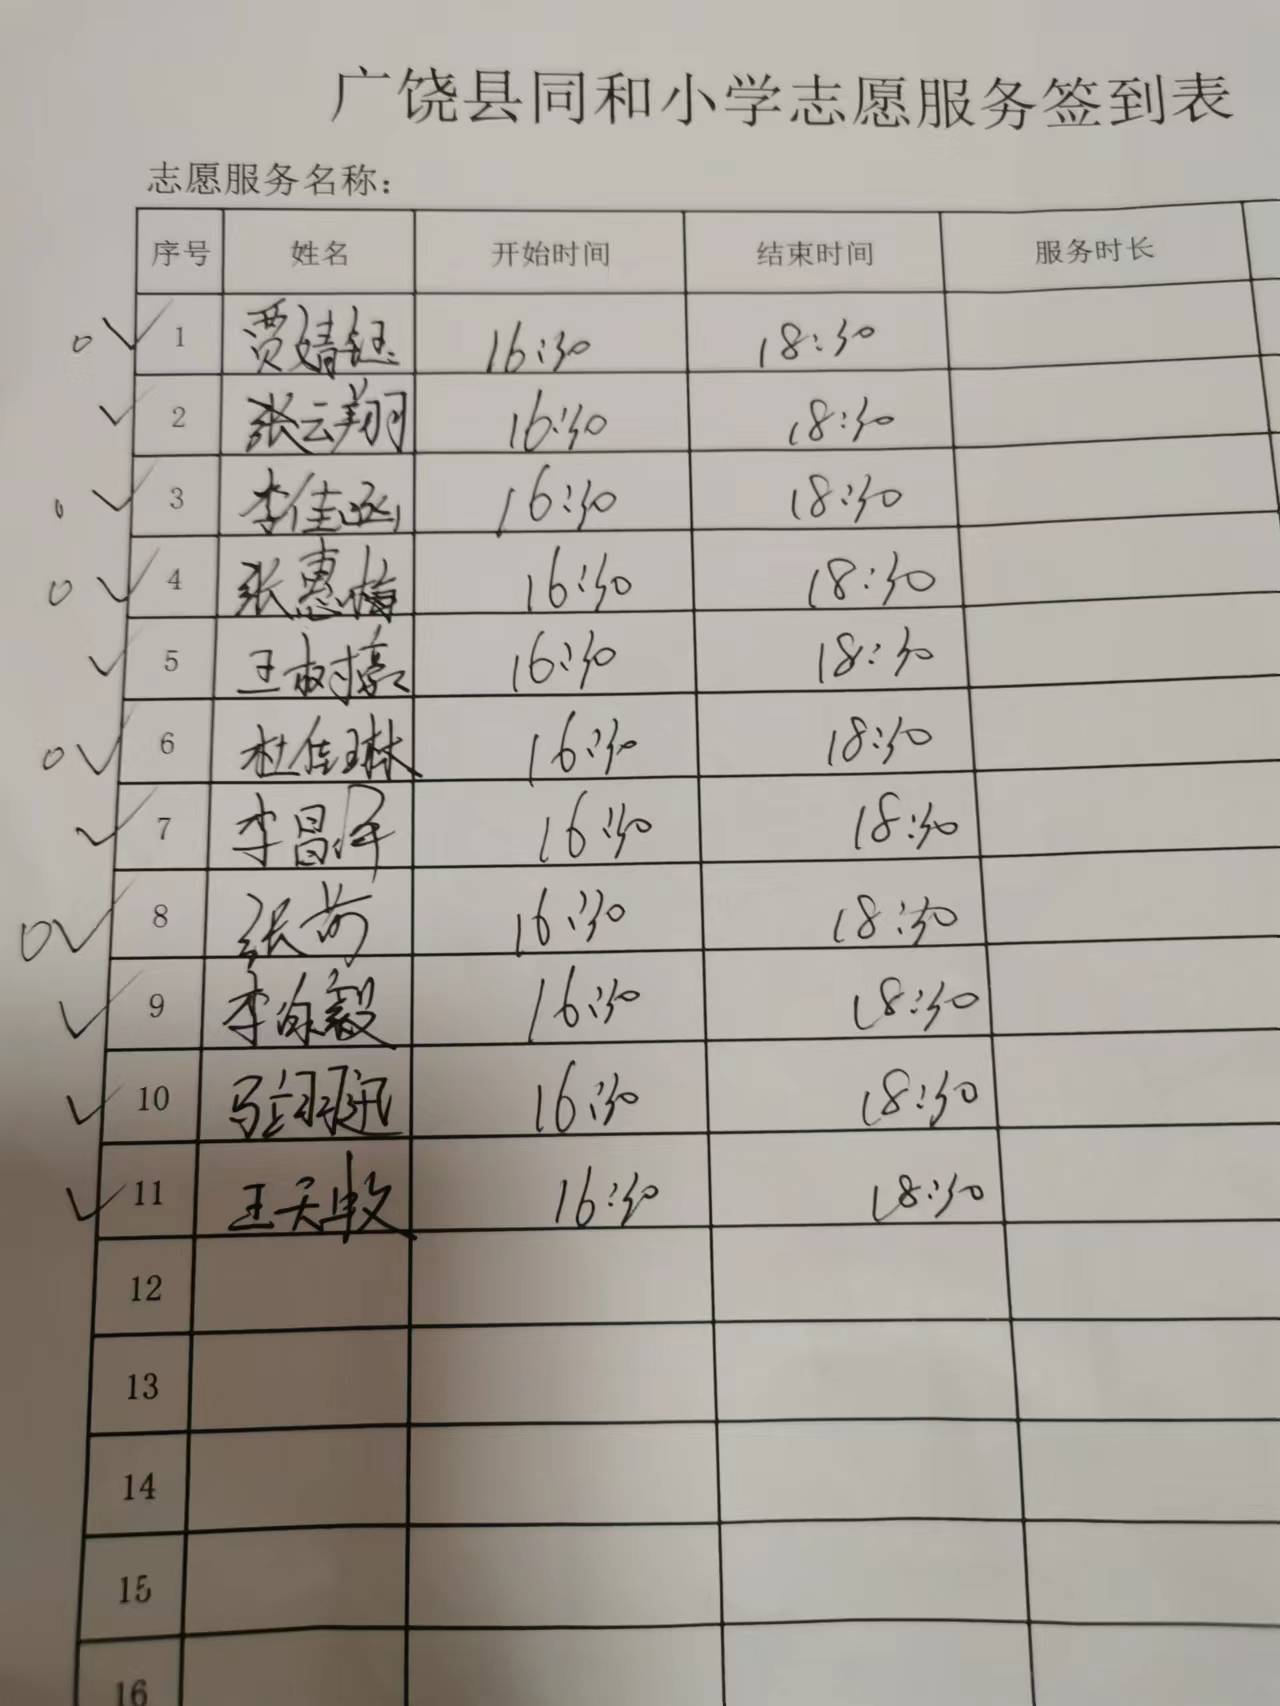 广饶县同和小学志愿服务签到表
志愿服务名称：
序号 姓名 开始时间 结束时间 服务时长
1 贾婧钰 16:30 18:30
2 张云翔 16:30 18:30
3 李佳函 16:30 18:30
4 张惠梅 16:30 18:30
5 王树豪 16:30 18:30
6 杜佳琳 16:30 18:30
7 李昌泽 16:30 18:30
8 张 16:30 18:30
9 李 毅 16:30 18:30
10 马翊迅 16:30 18:30
11 王天 16:30 18:30
12
13
14
15
16